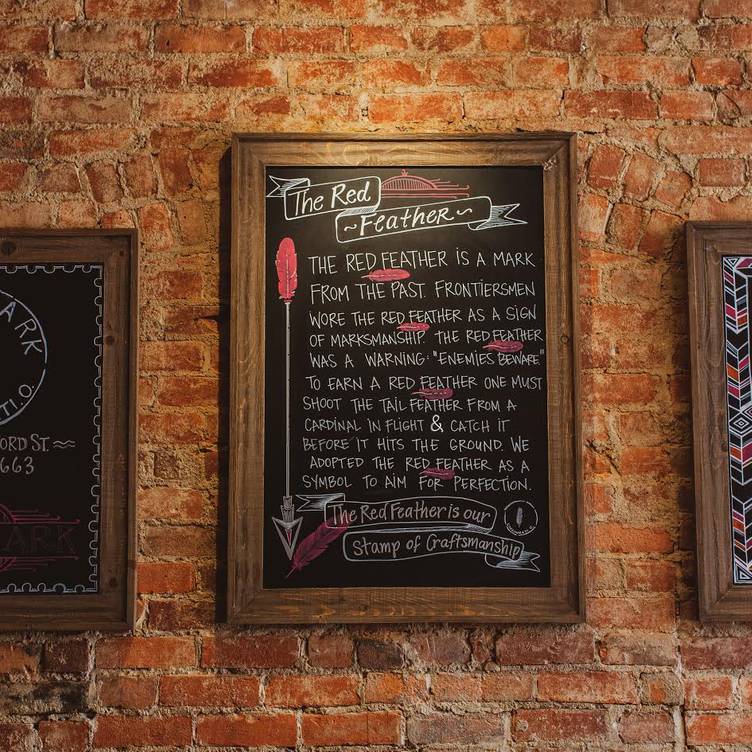 The Red
~Feather~
THE RED FEATHER IS A MARK
FROM THE PAST. FRONTIERSMEN
WORE THE RED FEATHER AS A SIGN
OF MARKSMANSHIP. THE RED FEATHER
WAS A WARNING: "ENEMIES BEWARE"
TO EARN A RED FEATHER ONE MUST
SHOOT THE TAIL FEATHER FROM A
CARDINAL IN FLIGHT & CATCH IT
BEFORE IT HITS THE GROUND. WE
ADOPTED THE RED FEATHER AS A
SYMBOL TO AIM FOR PERFECTION.
The Red Feather is our
Stamp of Craftsmanship
ARK
TI. O.
ORD ST.
663
ARK